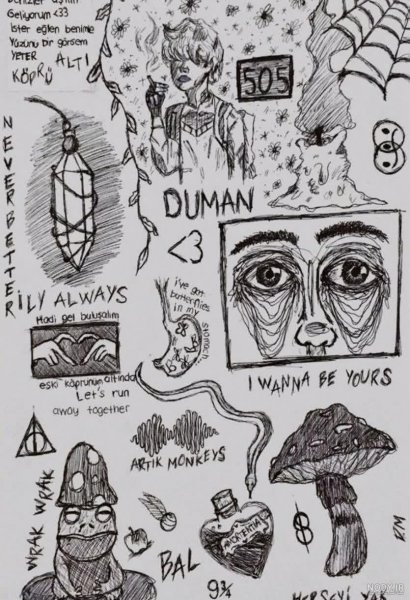 Geliyorum <33
ister eğlen benimle
Yüzünü bir görsem
YETER
ALTI
KÖPRÜ
505
NEVERBETTER
DUMAN
<3
ILY ALWAYS
Hadi gel buluşalım
eski köprünün altında
Let's run
away together
i've got
butterflies
in my
stomach
I WANNA BE YOURS
ARTIK MONKEYS
WRAK WRAK
BAL
AMORTENTIA
9¾
HERŞEYİ YAK
NOOY.IR